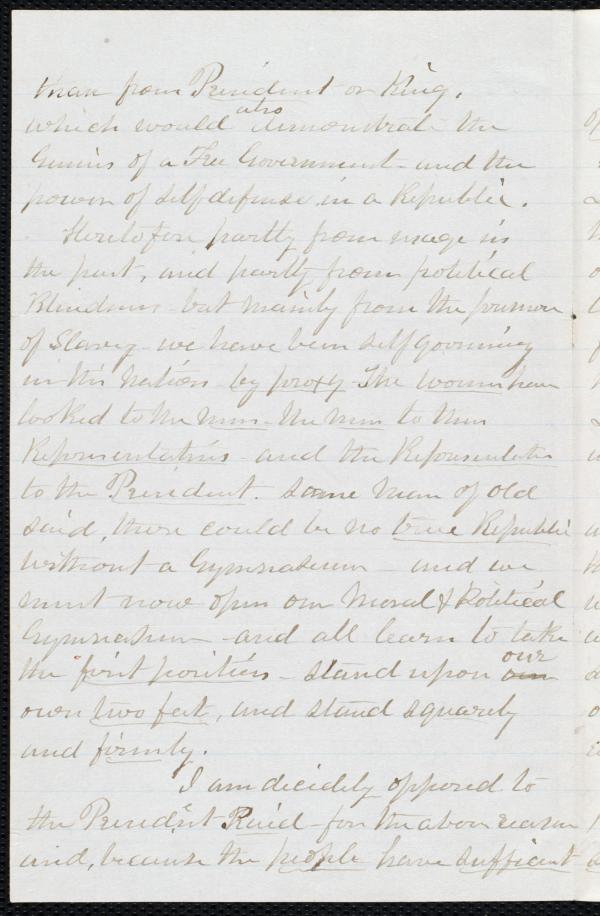 than from President or King,
which would also demonstrate the
Genius of a Free Government - and the
power of self defense in a Republic.
Heretofore partly from usage in
the past, and partly from political
Blindness - but mainly from the
of Slavery - we have been self governing
in this Nation by proxy - The women have
looked to the men - the men to their
Representatives - and the Representatives
to the President. Some man of old
said, there could be no true Republic
without a Gymnasium - and we
must now open our Moral & Political
Gymnasium - and all learn to take
the first position - stand upon our
own two feet, and stand squarely
and firmly.
I am decidely opposed to
the President Raid - for the above reason
and, because the people have sufficient